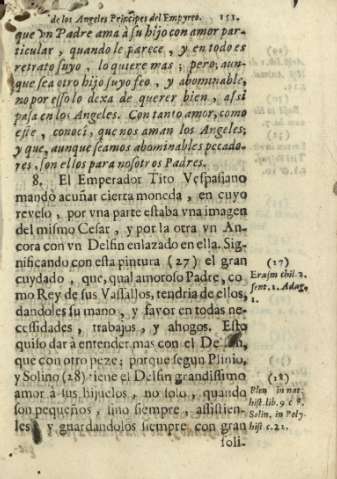 de los Angeles Principes del Empyreo. 151.
que vn Padre ama à su hijo con amor par-
ticular, quando le parece, y en todo es
retrato suyo, lo quiere mas; pero, aun-
que sea otro hijo suyo feo, y abominable,
no por esso lo dexa de querer bien, assi
pasa en los Angeles. Con tanto amor, como
este, conoci, que nos aman los Angeles;
y que, aunque seamos abominables pecado-
res, son ellos para nosotros Padres.
8. El Emperador Tito Vespasiano
mandò acuñar cierta moneda, en cuyo
reverso, por vna parte estaba vna imagen
del mismo Cesar, y por la otra vn An-
cora con vn Delfin enlazado en ella. Sig-
nificando con esta pintura (27) el gran
cuydado, que, qual amoroso Padre, co-
mo Rey de sus Vassallos, tendria de ellos,
dandoles su mano, y favor en todas ne-
cessidades, trabajos, y ahogos. Esto
quiso dar à entender mas con el Delfin,
que con otro peze; porque segun Plinio,
y Solino (28) tiene el Delfin grandissimo
amor à sus hijuelos, no solo, quando
son pequeños, sino siempre, assistien-
les, y guardandolos siempre con gran
soli-
(27)
Erasm chil. 2.
sent. 1. Adag.
1.
(28)
Plin in nat.
hist. lib. 9 c 8.
Solin. in Poly-
hist c. 21.